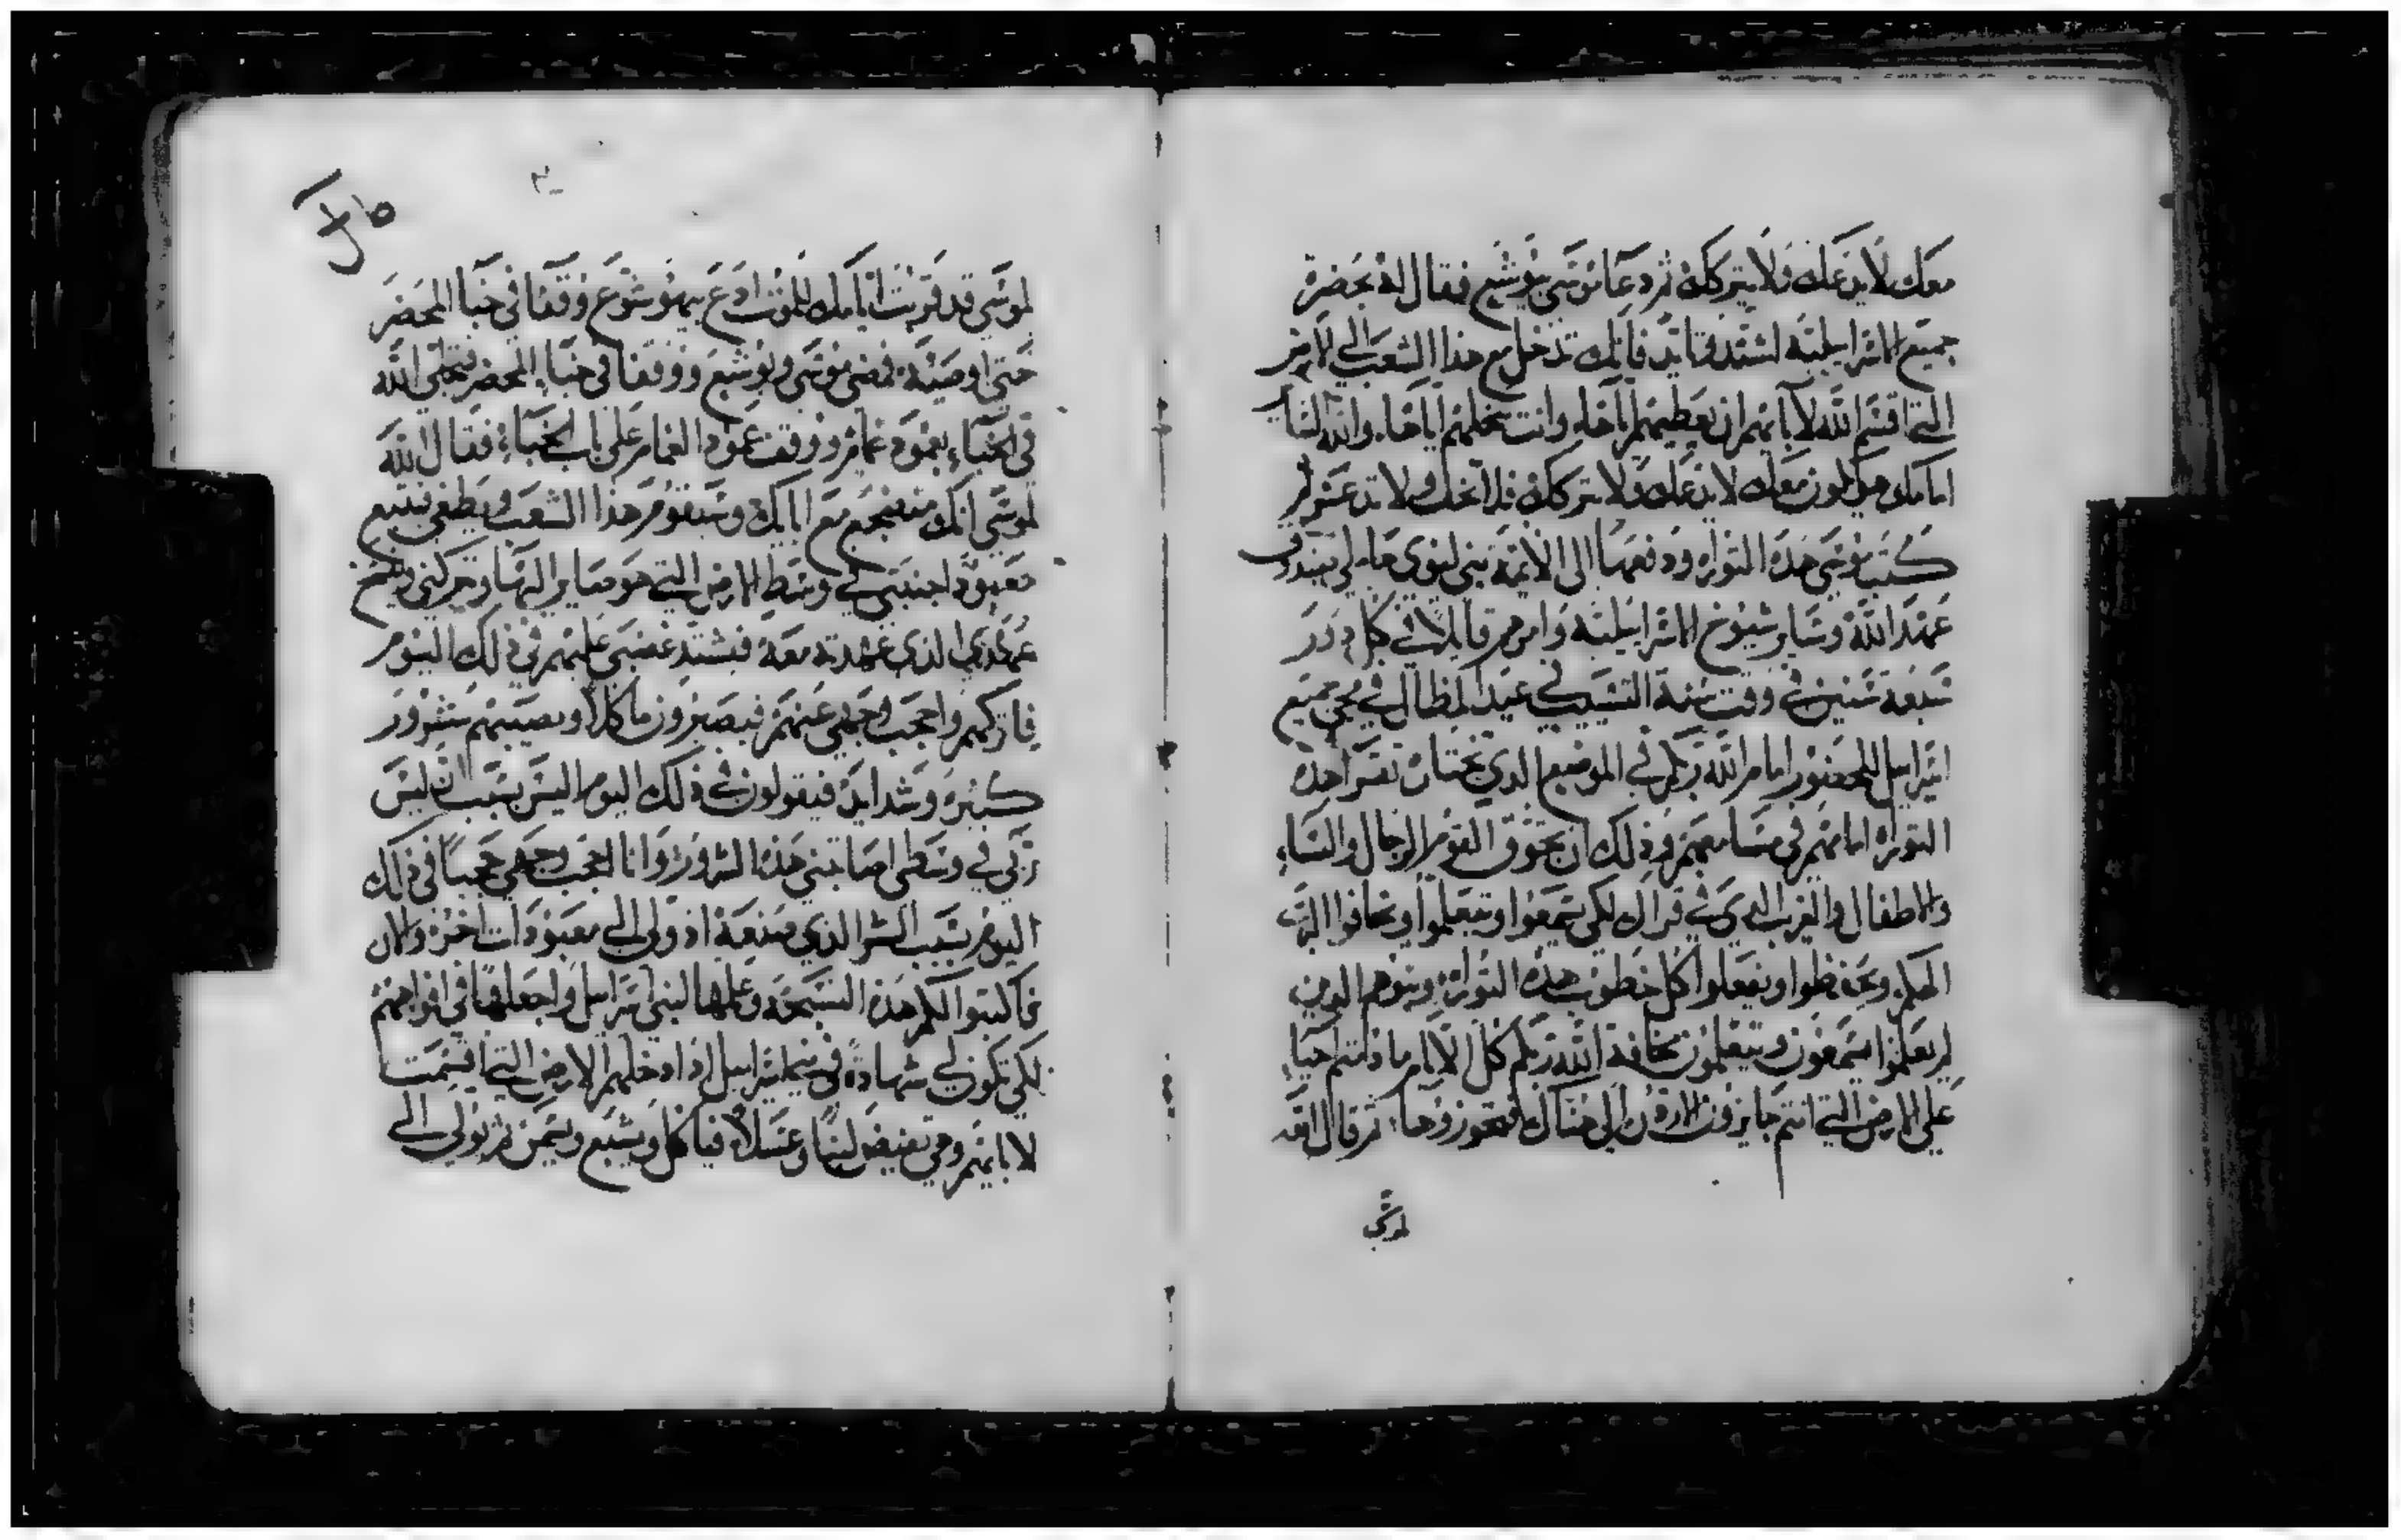 معك لا يدعك ولا يتركك ثم دعا موسى يوشع فقال له بحضرة
جميع الاسراييلية اشتد وتايد فانك تدخل مع هذا الشعب الى الارض
التى اقسم الله لابايهم ان يعطيهم اياها وانت تنحلهم اياها والله الساير
امامك هو يكون معك لا يدعك ولا يتركك فلا تخف ولا تذعر ثم
كتب موسى هذه التوراه ودفعها الى الايمة بنى ليوى حاملى صندوق
عهد الله وساير شيوخ الاسراييلية وامرهم قايلا فى كل دور
سبعة سنين فى وقت سنة التسييب فى عيد المظال فى مجى جميع
اسراييل للحضور امام الله ربكم فى الموضع الدى يختاره تقرا هذه
التوراه امامهم فى مسامعهم وذلك ان تجوق القوم الرجال والنساء
والاطفال والغريب الدى فى قراك لكى يسمعوا ويتعلموا ويخافوا الرب
الهكم ويحفظوا ويفعلوا كل خطوب هذه التوراة وبنوهم الدين
لم يعلموا يسمعون ويتعلمون مخافة الله ربكم كل الايام ما دمتم احياء
على الارض التى انتم جايزون الاردن الى هناك لتحوزوها ثم قال الله
لموسى
لموسى قد قربت ايامك للموت ادع بيهوشوع وقفا فى خبا المحضر
حتى اوصيه فمضى موسى ويوشع ووقفا فى خباء المحضر فتجلى الله
فى الخباء بعمود غمام ووقف عمود الغمام على باب الخباء فقال الله
لموسى انك منضجع مع ابايك وسيقوم هذا الشعب ويطغى بتبع
معبودا اجنبى فى وسط الارض التى هو صاير اليها ويتركنى ويفسخ
عهدى الذى عهدته معه فيشتد غضبى عليهم فى ذلك اليوم
فاتركهم واحجب وجهى عنهم فيصيرون ماكلا وتصيبهم شرور
كثيرة وشدايد فيقولون فى ذلك اليوم اليس بسبب ان ليس
ربى فى وسطى اصابتنى هذه الشرور وانا احجب وجهى حجبا فى ذلك
اليوم بسبب الشر الذى صنعه اذ ولى الى معبودات اخر والان
فاكتبوا لكم هذه التسبحة وعلمها لبنى اسراييل واجعلها فى افواههم
لكى تكون لى شهادة فى بنى اسراييل اذا ادخلهم الارض التى اقسمت
لابايهم وهى تفيض لبنا وعسلا فياكل ويشبع ويسمن ثم يولى الى